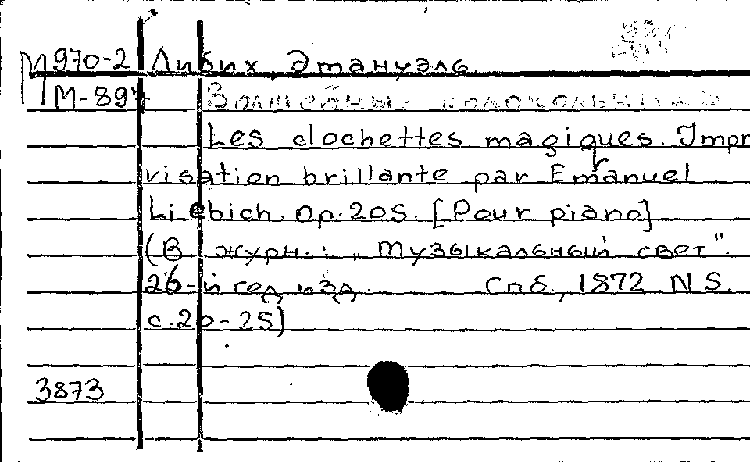 М970-2 Либих, Эмануэль
М-894 Волшебные колокольчики
Les clochettes magiques. Impr
visation brillante par Emanuel
Liebich. Op. 205. [Pour piano]
(В журн.: „Музыкальный свет".
26-й год изд. Спб., 1872 N 5.
с. 20-25)
3873